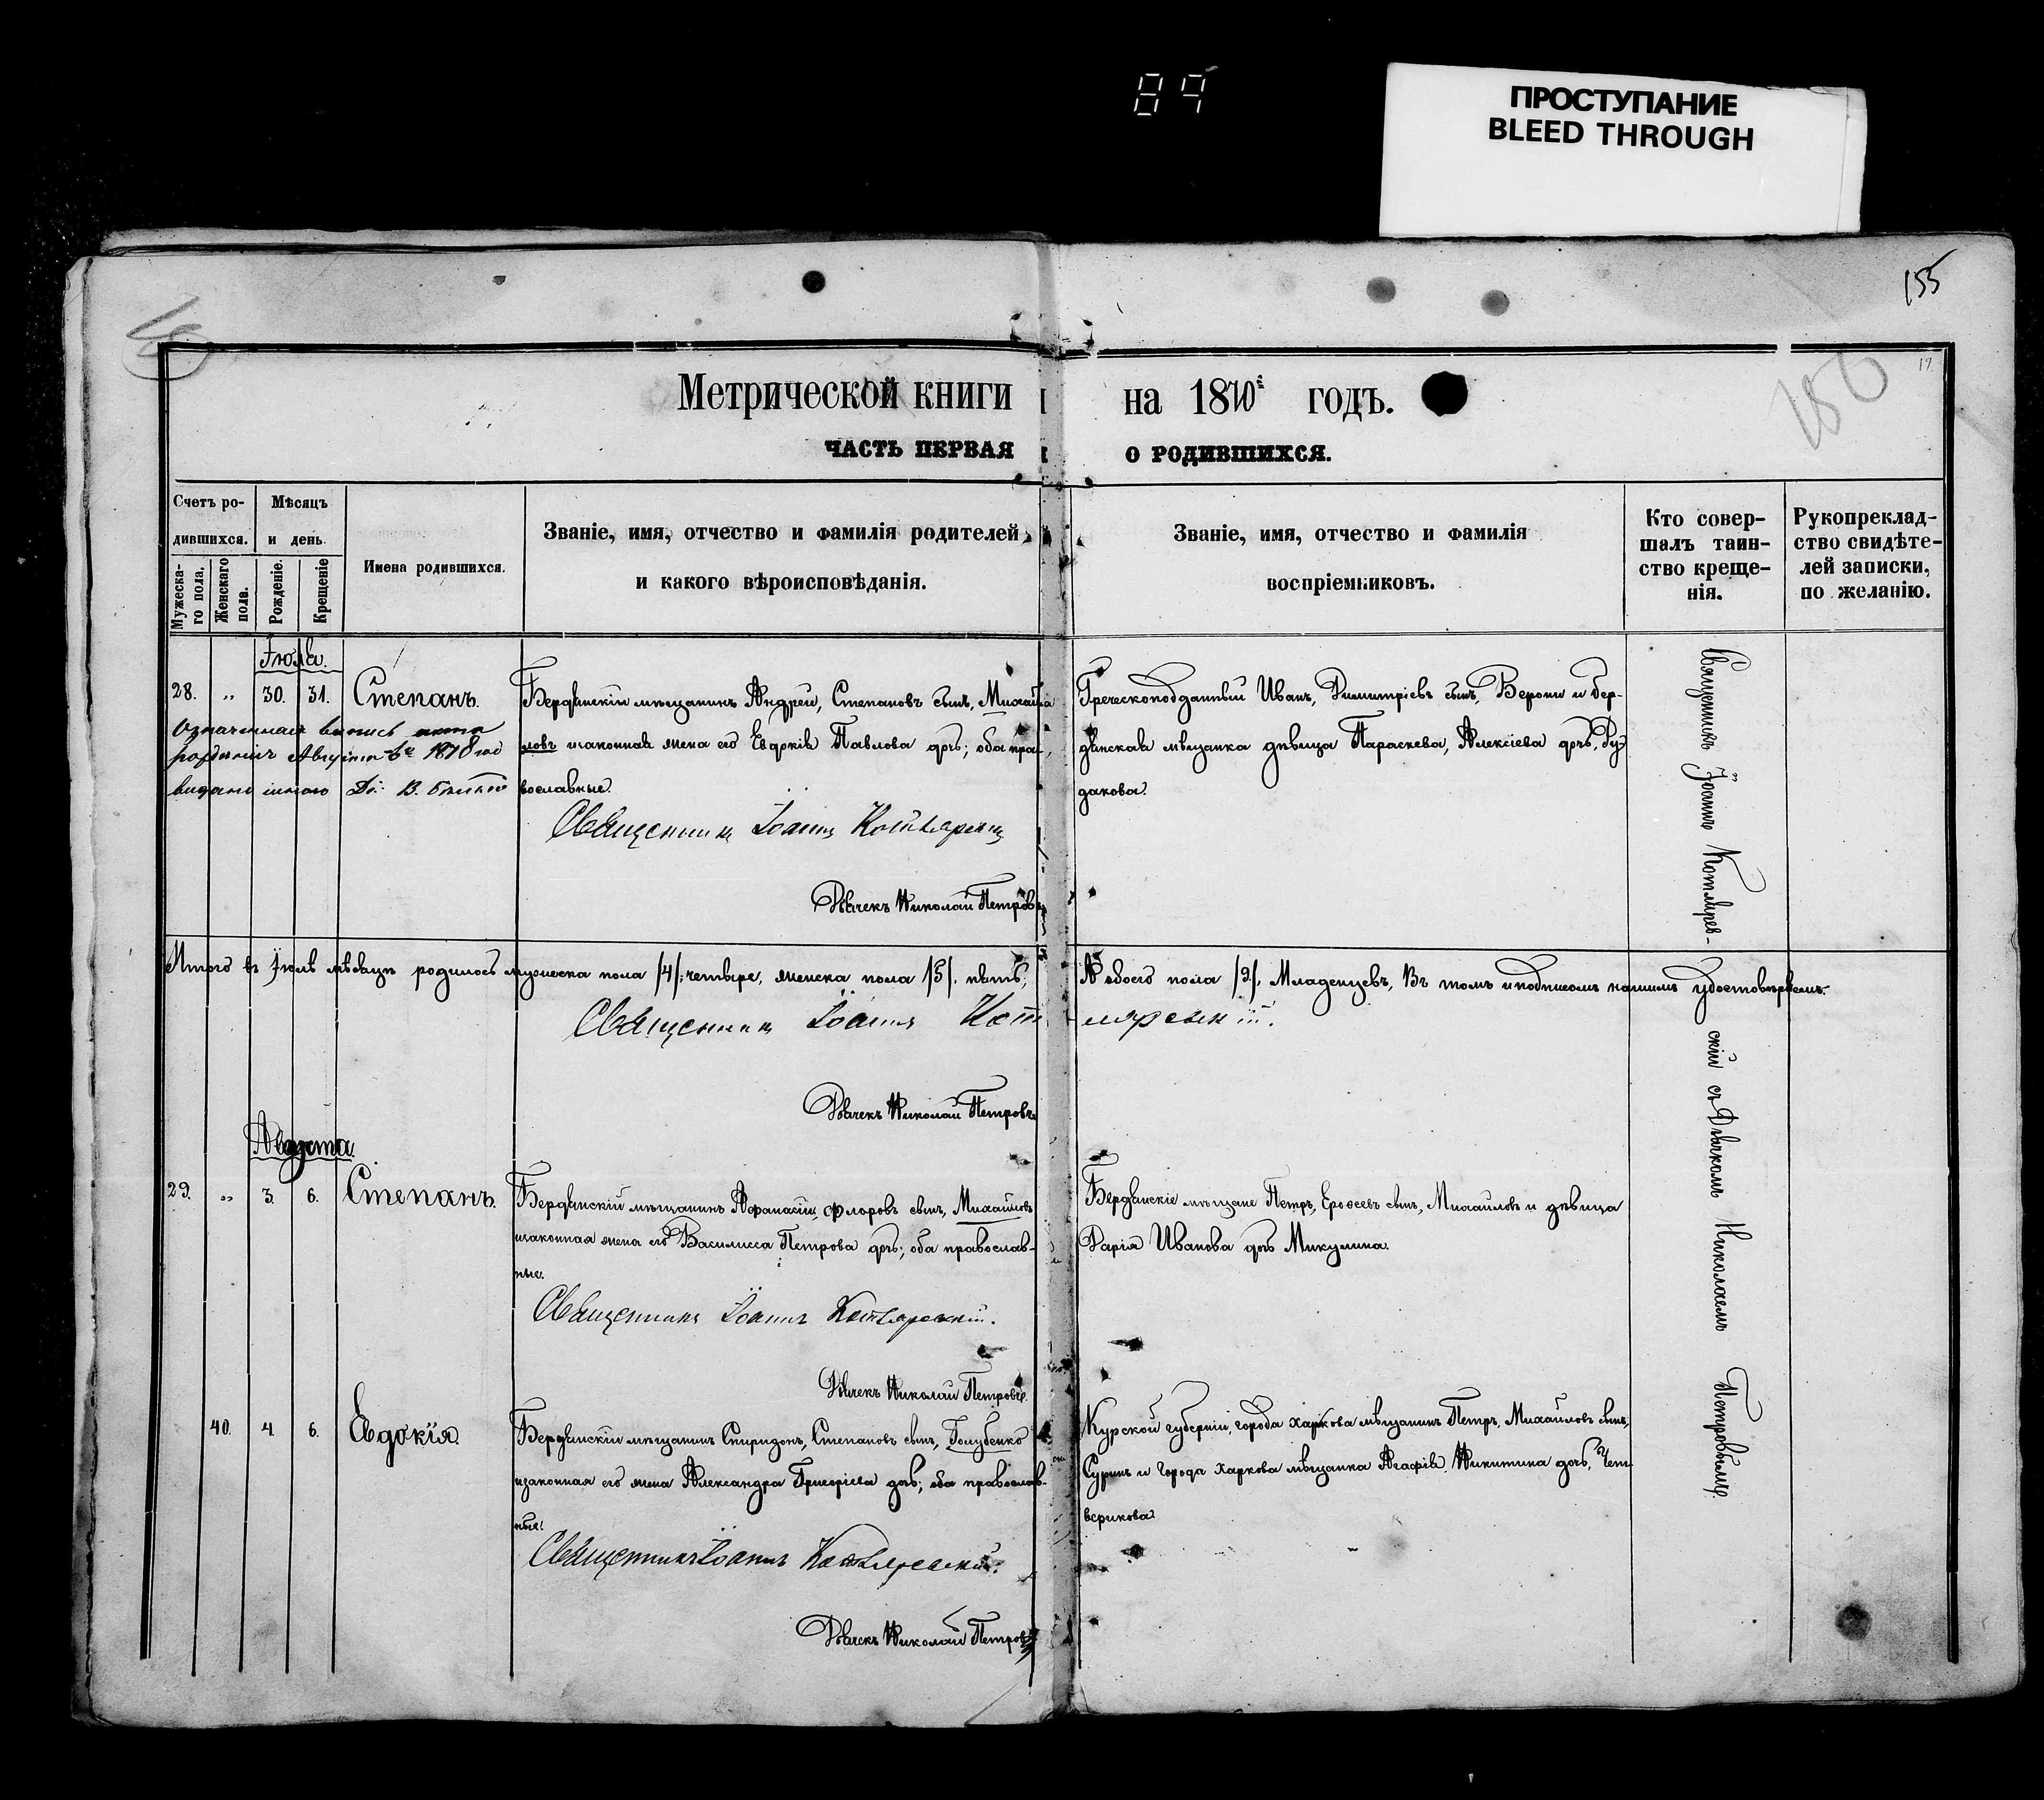 89
ПРОСТУПАНИЕ
BLEED THROUGH
155
19
156
Метрической книги на 1870й годъ.
ЧАСТЬ ПЕРВАЯ О РОДИВШИХСЯ.
Счетъ родившихся.
Мужескаго пола.
Женскаго пола.
Мѣсяцъ и день.
Рожденіе.
Крещеніе
Имена родившихся.
Званіе, имя, отчество и фамилія родителей
и какого вѣроисповѣданія.
Званіе, имя, отчество и фамилія
воспріемниковъ.
Кто совер-
шалъ таин-
ство креще-
нія.
Рукопреклад-
ство свидѣте-
лей записки,
по желанію.
Іюля.
28. „ 30. 31. Степанъ.
Бердянскій мѣщанинъ Андрей, Степановъ сынъ, Михай-
ловъ изаконная жена его Евдокія Павлова дочь; оба пра-
вославные.
Греческоподданный Иванъ, Димитріевъ сынъ, Верони и бер-
дянская мѣщанка дѣвица Параскева, Алексіева дочь, Ру-
дакова.
Означенная
Августа 1878
Священникъ Іоаннъ Котляревскій
Дьячекъ Николай Петровъ
Итого въ Іюлѣ мѣсяцѣ родилось мужеска пола /4/. четыре, женска пола /5/. пять,
А обоего пола /9/. Младенцевъ, Въ томъ и подписомъ нашимъ удостовѣряемъ.
Священникъ Іоаннъ Котляревскій.
Дьячекъ Николай Петровъ
Августа.
29. „ 3. 6. Степанъ.
Бердянскій мѣщанинъ Афанасій, Флоровъ сынъ, Михайловъ
изаконная жена его Василисса Петрова дочь; оба православ-
ные.
Бердянскіе мѣщане Петръ, Ерофеевъ сынъ, Михайловъ и дѣвица
Дарія Иванова дочь Микулина.
Священникъ Іоаннъ Котляревскій.
Дьячекъ Николай Петровъ.
40. 4. 6. Евдокія.
Бердянскій мѣщанинъ Спиридонъ, Степановъ сынъ, Голубенко
изаконная его жена Александра Григоріева дочь; оба православ-
ные.
Курской губерніи, города Харкова мѣщанинъ Петръ, Михайловъ сынъ,
Суринъ и города Харкова мѣщанка Агафія, Никитина дочь, Чет-
верикова.
Священникъ Іоаннъ Котляревскій.
Дьячекъ Николай Петровъ
Священникъ Іоаннъ Котляревскій съ Дьячкомъ Николаемъ Петровымъ.